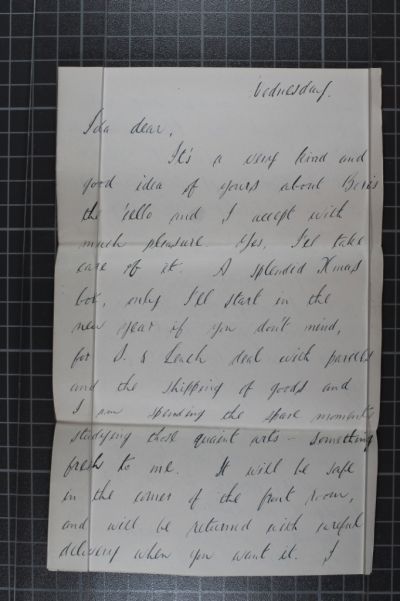 Wednesday.
Ida dear,
It's a very kind and
good idea of yours about Boris
the 'cello and I accept with
much pleasure. Yes, I'll take
care of it. A splendid Xmas
box, only I'll start in the
new year if you don't mind,
for S. & Leach deal with parcels
and the shipping of goods and
I am spending the spare moments
studying those quaint arts - something
fresh to me. It will be safe
in the corner of the front room,
and will be returned with careful
delivery when you want it. I